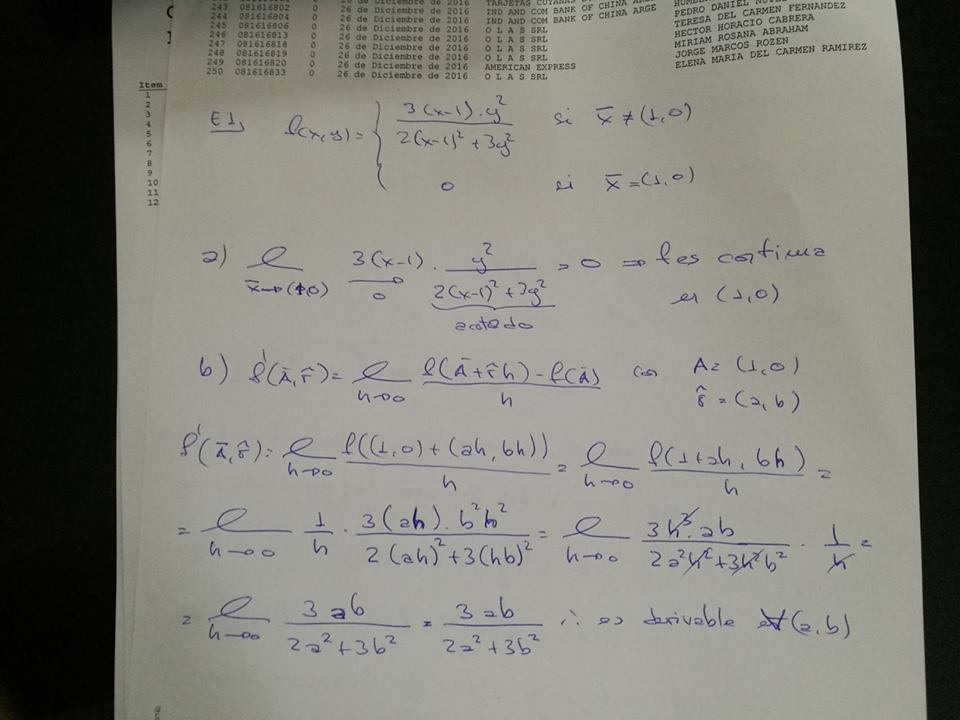 243 081616802 0 26 de Diciembre de 2016
244 081616804 0 26 de Diciembre de 2016 IND AND COM BANK OF CHINA ARGE PEDRO DANIEL
245 081616806 0 26 de Diciembre de 2016 IND AND COM BANK OF CHINA ARGE TERESA DEL CARMEN FERNANDEZ
246 081616813 0 26 de Diciembre de 2016 O L A S SRL HECTOR HORACIO CABRERA
247 081616818 0 26 de Diciembre de 2016 O L A S SRL MIRIAM ROSANA ABRAHAM
248 081616819 0 26 de Diciembre de 2016 O L A S SRL JORGE MARCOS ROZEN
249 081616820 0 26 de Diciembre de 2016 AMERICAN EXPRESS ELENA MARIA DEL CARMEN RAMIREZ
250 081616833 0 26 de Diciembre de 2016 O L A S SRL
Item
1
2
3
4
5
6
7
8
9
10
11
12
E1, f(x,y) = { 3(x-1).y² / 2(x-1)²+3y² si x̄ ≠ (1,0)
0 si x̄ = (1,0)
a) l x̄→(1,0) 3(x-1) . y² / 2(x-1)²+3y² = 0 ⇒ f es continua
0 acotado en (1,0)
b) f'(Ā,r̂) = l h→0 f(Ā+r̂h) - f(Ā) / h con A = (1,0)
r̂ = (a,b)
f'(Ā,r̂) = l h→0 f((1,0)+(ah,bh)) / h = l h→0 f(1+ah, bh) / h =
= l h→0 1/h . 3(ah).b²h² / 2(ah)²+3(hb)² = l h→0 3h³.ab / 2a²h²+3h²b² . 1/h =
= l h→0 3ab / 2a²+3b² = 3ab / 2a²+3b² ∴ es derivable ∀(a,b)